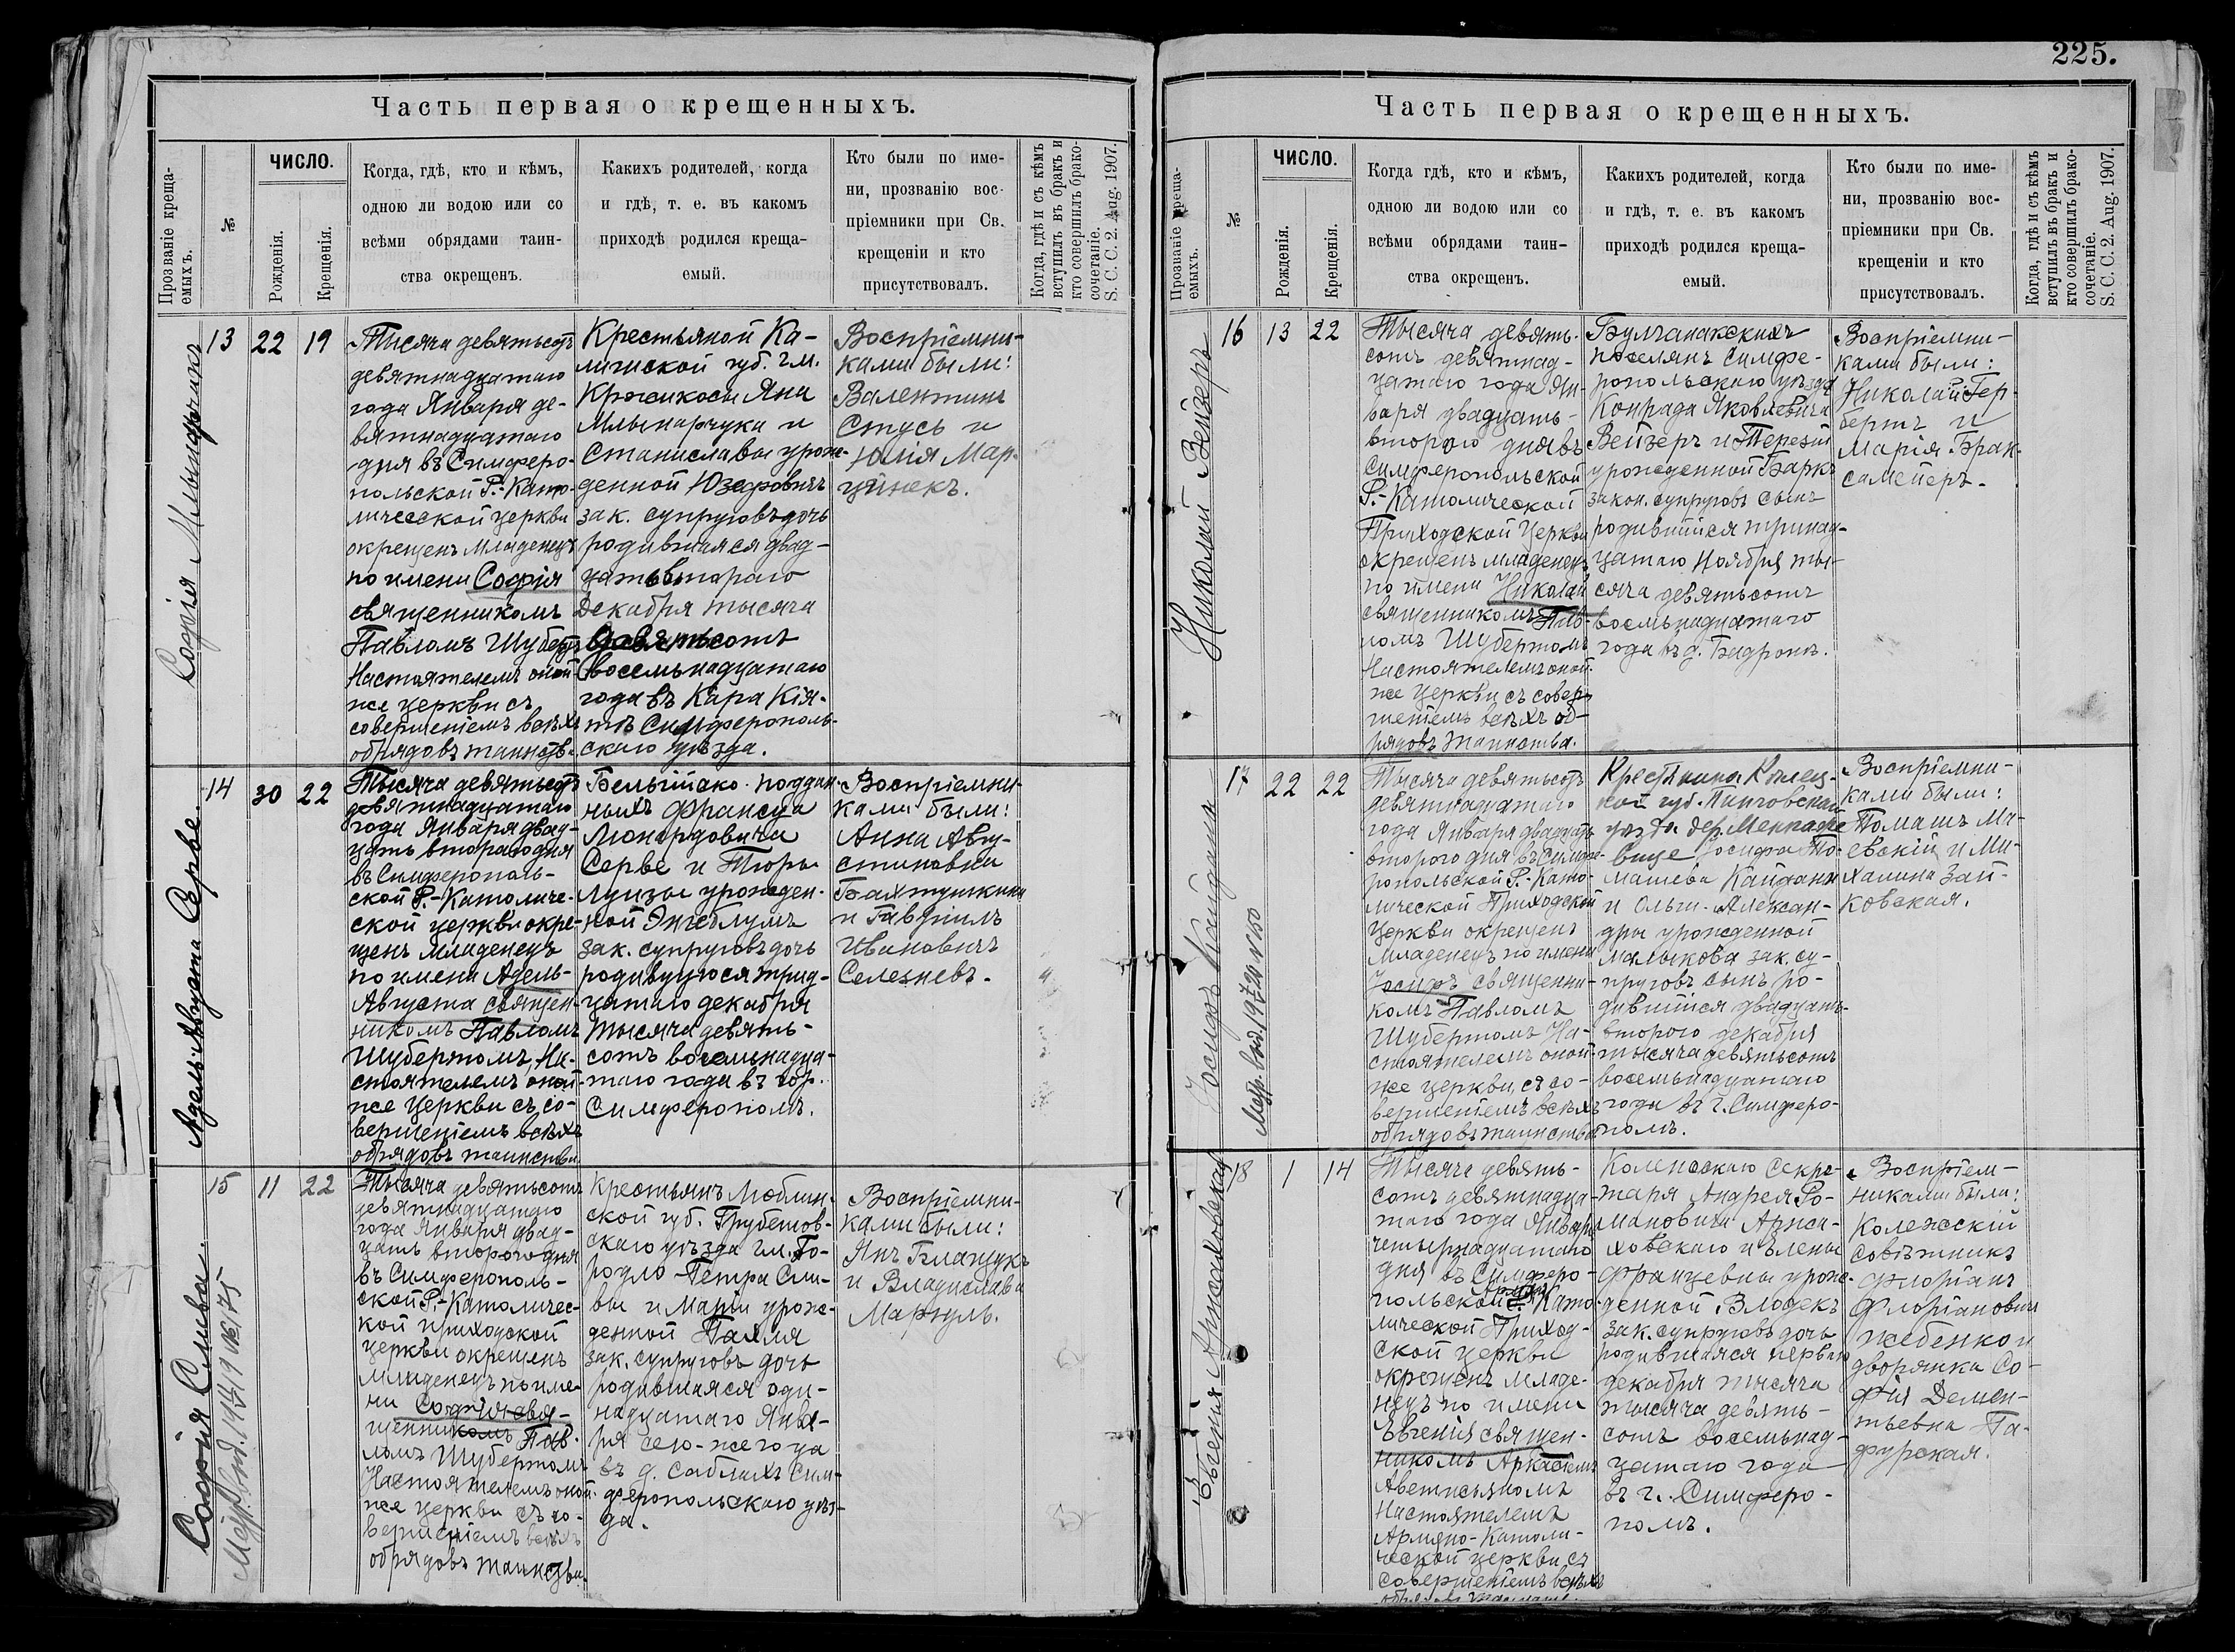 225.
Часть первая о крещенныхъ.
Прозваніе креща-
емыхъ.
№
ЧИСЛО.
Рожденія.
Крещенія.
Когда, гдѣ, кто и кѣмъ,
одною ли водою или со
всѣми обрядами таин-
ства окрещенъ.
Какихъ родителей, когда
и гдѣ, т. е. въ какомъ
приходѣ родился креща-
емый.
Кто были по име-
ни, прозванію вос-
пріемники при Св.
крещеніи и кто
присутствовалъ.
Когда, гдѣ и съ кѣмъ
вступилъ въ бракъ и
кто совершилъ брако-
сочетаніе.
S. C. C. 2. Aug. 1907.
Софія Млынарчукъ
13
22
19
Тысяча девятьсотъ
девятнадцатаго
года Января де-
вятнадцатаго
дня въ Симферо-
польской Р.-Като-
лической церкви
окрещенъ младенецъ
по имени Софія
священникомъ
Павломъ Шуберт
Настоятелемъ оной
же церкви съ
совершеніемъ всѣхъ
обрядовъ таинств.
Крестьяной Ка-
лишской губ. гм.
Яна
Млынарчука и
Станиславы урож-
денной Юзефовичъ
зак. супруговъ дочь
родившаяся двад-
цатьвтораго
Декабря тысяча
девятьсотъ
восемьнадцатаго
года въ Кара Кія-
тѣ Симферополь-
скаго уѣзда.
Воспріемни-
ками были:
Валентинъ
Стусь и
Юлія Мар-
цинекъ.
Адель-Августа Серве
14
30
22
Тысяча девятьсотъ
девятнадцатаго
года Января двад-
цать втораго дня
въ Симферополь-
ской Р.-Католиче-
ской церкви окре-
щенъ младенецъ
по имени Адель-
Августа священ-
никомъ Павломъ
Шубертомъ, На-
стоятелемъ оной
же церкви съ со-
вершеніемъ всѣхъ
обрядовъ таинства.
Бельгійско-поддан-
ныхъ Франсуа
Люнардовича
Серве и
Луизы урожден-
ной Энгеблумъ
зак. супруговъ дочь
родивущюся трид-
цатаго декабря
тысяча девять-
сотъ восемьнадца-
таго года въ гор.
Симферополѣ.
Воспріемни-
ками были:
Анна Авгу-
стиновна
Бахтушкина
и Гавріилъ
Ивановичъ
Селезневъ.
Софія Слива
15
11
22
Тысяча девятьсотъ
девятнадцатаго
года Января двад-
цать второго дня
въ Симферополь-
ской Р.-Католичес-
кой приходской
церкви окрещенъ
младенецъ по име-
ни Софія свя-
щенникомъ Пав-
ломъ Шубертомъ
Настоятелемъ оной
же церкви съ со-
вершеніемъ всѣхъ
обрядовъ таинства.
Крестьянъ Люблин-
ской губ. Грубешов-
скаго уѣзда гм. Го-
родло Петра Сли-
вы и Маріи урож-
денной Пахля
зак. супруговъ дочь
родившаяся оди-
надцатаго Янва-
ря сего-же года
въ д. Саблахъ Сим-
феропольскаго уѣз-
да.
Воспріемни-
ками были:
Янъ Блащукъ
и Владислава
Марцуль.
Часть первая о крещенныхъ.
Прозваніе креща-
емыхъ.
№
ЧИСЛО.
Рожденія.
Крещенія.
Когда гдѣ, кто и кѣмъ,
одною ли водою или со
всѣми обрядами таин-
ства окрещенъ.
Какихъ родителей, когда
и гдѣ, т. е. въ какомъ
приходѣ родился креща-
емый.
Кто были по име-
ни, прозванію вос-
пріемники при Св.
крещеніи и кто
присутствовалъ.
Когда, гдѣ и съ кѣмъ
вступилъ въ бракъ и
кто совершилъ брако-
сочетаніе.
S. C. C. 2. Aug. 1907.
Николай Вейзеръ
16
13
22
Тысяча девять-
сотъ девятнад-
цатаго года Ян-
варя двадцать-
второго дня въ
Симферопольской
Р.-Католической
Приходской Церкви
окрещенъ младенецъ
по имени Николай
священникомъ Пав-
ломъ Шубертомъ
Настоятелемъ оной-
же церкви съ совер-
шеніемъ всѣхъ об-
рядовъ таинства.
Булганакскихъ
поселянъ Симфе-
ропольскаго уѣзда
Конрада Яковлевича
Вейзеръ и Терезіи
урожденной Баркъ
закон. супруговъ сынъ
родившійся тринад-
цатаго Ноября ты-
сяча девятьсотъ
восемьнадцатаго
года въ д. Бадракъ.
Воспріемни-
ками были:
Николай Гер-
бертъ и
Марія Брак-
самейеръ.
Іосифъ Кайданъ
17
22
22
Тысяча девятьсотъ
девятнадцатаго
года Января двадцать
второго дня въ Симфе-
ропольской Р.-Като-
лической Приходской
Церкви окрещенъ
младенецъ по имени
Іосифъ священни-
комъ Павломъ
Шубертомъ На-
стоятелемъ оной-
же церкви съ со-
вершеніемъ всѣхъ
обрядовъ таинства.
Крестьянина Кѣлец-
кой губ. Пинчовскаго
уѣзда дер.
Іосифа То-
машева Кайдана
и Ольги-Алексан-
дры урожденной
Малыкова зак. су-
пруговъ сынъ ро-
дившійся двадцать-
второго декабря
тысяча девятьсотъ
восемьнадцатаго
года въ г. Симферо-
полѣ.
Воспріемни-
ками были:
Томашъ Ма-
евскій и Ми-
халина Зай-
ковская.
Евгенія Аржаховская
18
1
14
Тысяча девять-
сотъ девятнадца-
таго года Января
четырнадцатаго
дня въ Симферо-
польской Армяно Като-
лической Приход-
ской церкви
окрещенъ младе-
нецъ по имени
Евгенія священ-
никомъ Аркасіемъ
Аветисьяномъ
Настоятелемъ
Армяно-Католи-
ческой церкви съ
совершеніемъ всѣхъ
Коленскаго Секре-
таря Андрея Ро-
мановича Аржа-
ховскаго и Елены
Францевны урож-
денной Влодекъ
зак. супруговъ дочь
родившаяся перваго
декабря тысяча
тысяча девять-
сотъ восемьнад-
цатаго года
въ г. Симферо-
полѣ.
Воспріем-
никами были:
Колежскій
совѣтникъ
Флоріанъ
Флоріановичъ
Жебенко и
дворянка Со-
фія Демен-
тьевна Га-
фурская.